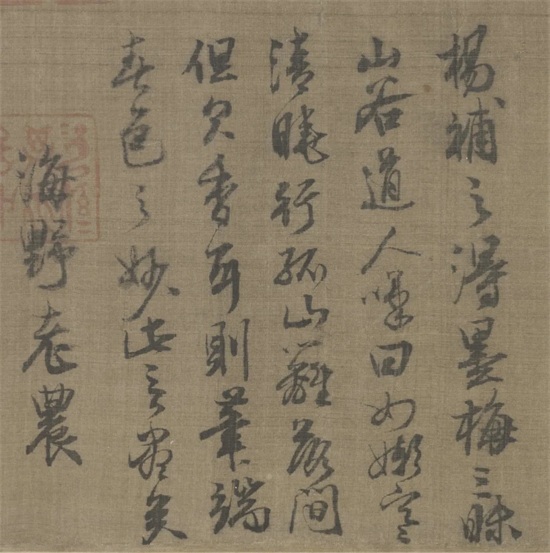 楊補之得墨梅三昧
山谷道人嘆曰如嫩寒
清曉行孤山籬落間
但欠香耳則筆端
春色之妙此言盡矣
海野老農